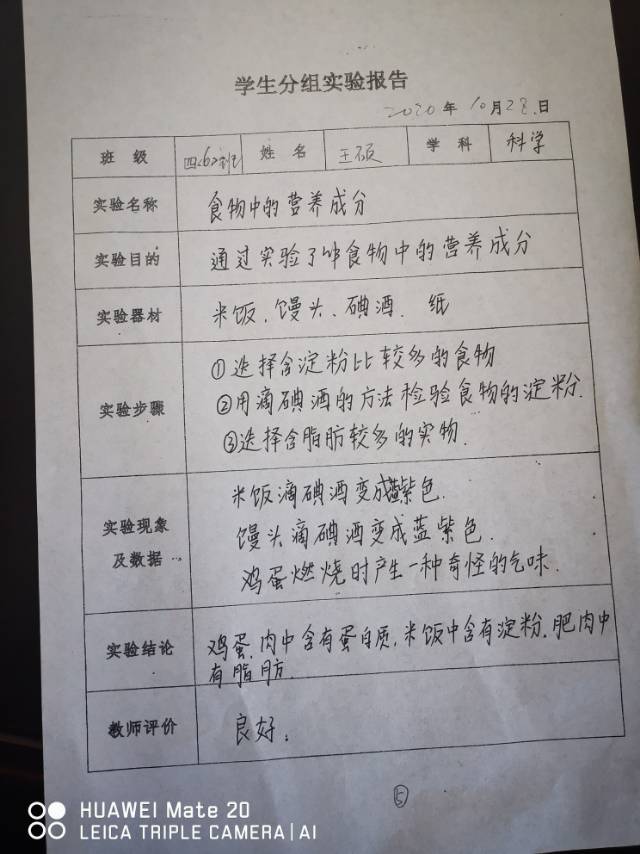 学生分组实验报告
2020年10月28日
班级 四<6>班 姓名 王硕 学科 科学
实验名称 食物中的营养成分
实验目的 通过实验了吥食物中的营养成分
实验器材 米饭、馒头、碘酒、纸
①选择含淀粉比较多的食物
实验步骤 ②用滴碘酒的方法检验食物的淀粉.
③选择含脂肪较多的实物.
米饭滴碘酒变成蓝紫色.
实验现象 馒头滴碘酒变成蓝紫色.
及数据 鸡蛋燃烧时产生一种奇怪的气味.
实验结论 鸡蛋.肉中含有蛋白质,米饭中含有淀粉.肥肉中
有脂肪.
教师评价 良好;
⑤
HUAWEI Mate 20
LEICA TRIPLE CAMERA | AI